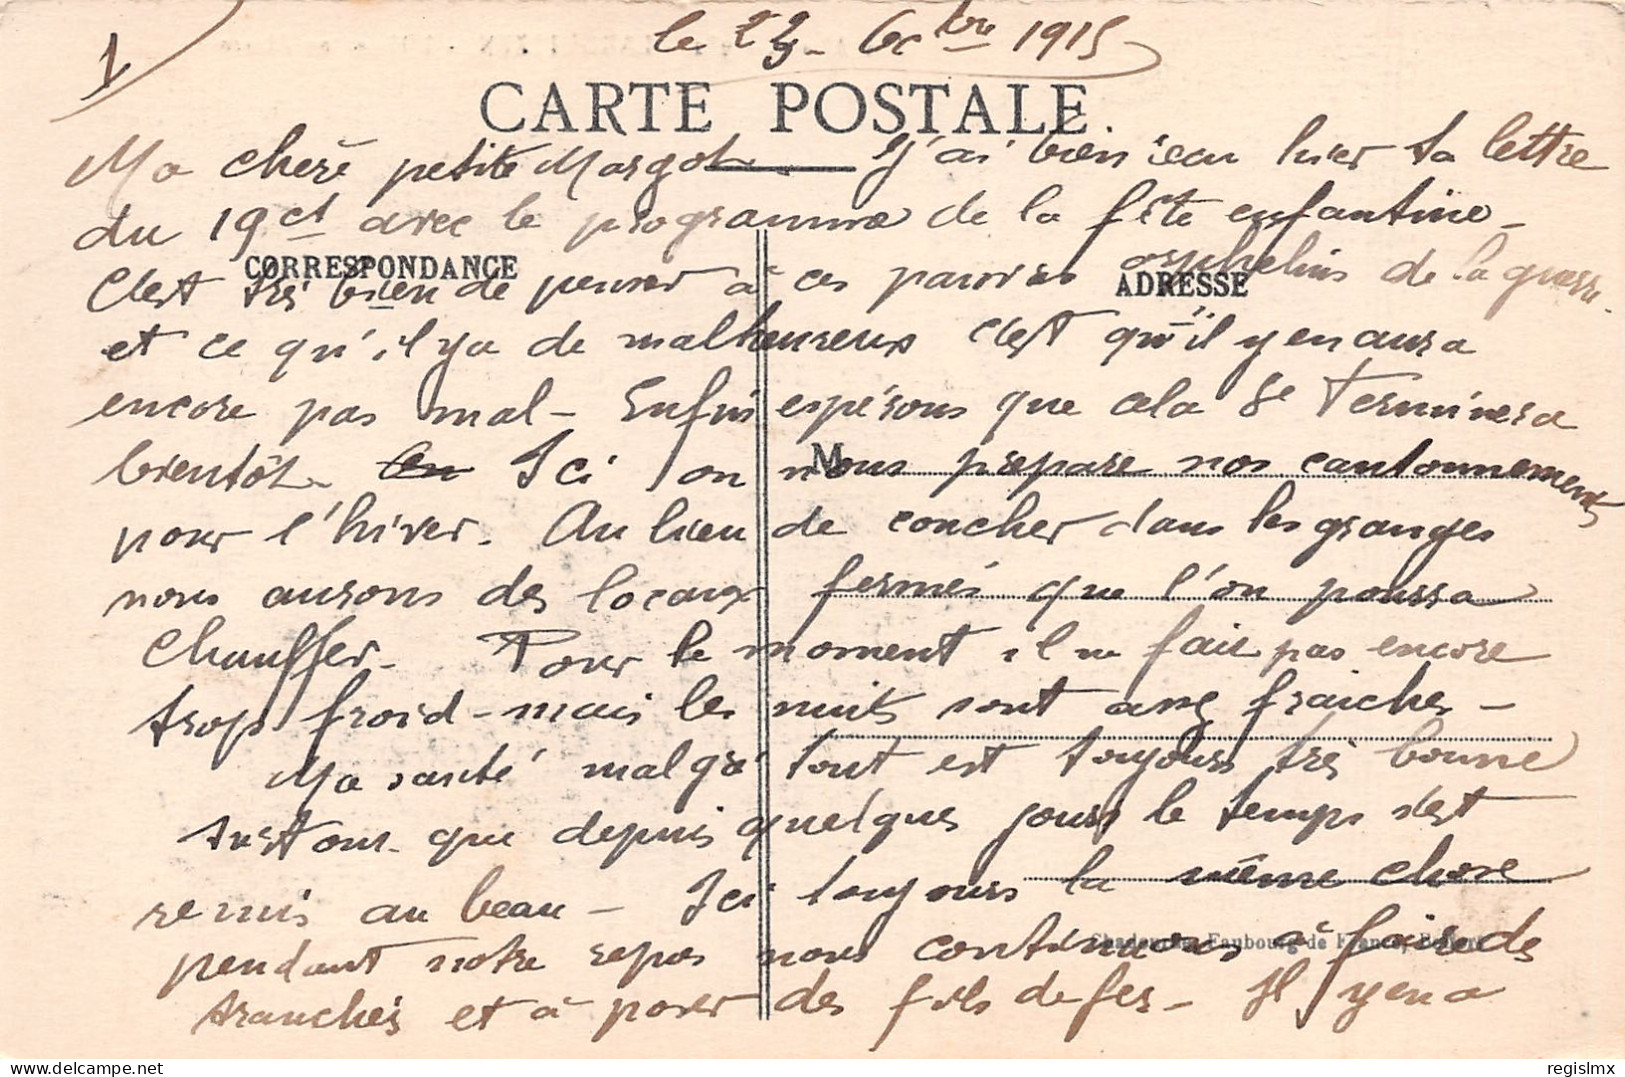 1
le 23 - 6 bre 1915
CARTE POSTALE
Ma chère petite Margot J'ai bien reçu hier ta lettre
du 19 ct avec le programme de la fête enfantine -
CORRESPONDANCE
ADRESSE
C'est très bien de penser à ces pauvres orphelins de la guerre
et ce qu'il y a de malheureux c'est qu'il y en aura
encore pas mal - Enfin espérons que cela se terminera
bientôt. Ici on nous prepare nos cantonnements
M
pour l'hiver. Au lieu de coucher dans les granges
nous aurons des locaux fermés que l'on poura
chauffer. Pour le moment il ne fait pas encore
trop froid - mais les nuits sont assez fraiches -
Ma santé malgré tout est toujours très bonne
surtout que depuis quelques jours le temps s'est
remis au beau - Ici toujours la même chose
pendant notre repos nous continuons à faire des
Faubourg de France, Belfort
tranchés et à poser des fils de fer - Il y en a
regislmx